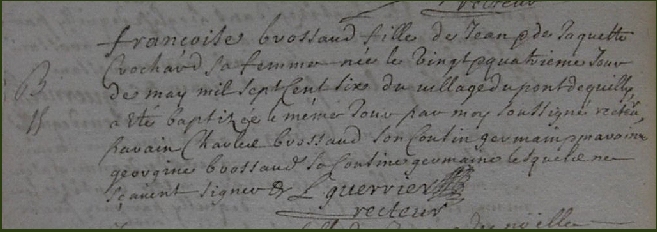 recteur
B
françoise brossaud fille de Jean & de Jaquette
Crochard sa femme née le vingt quatrieme Jour
de may mil sept cent six du village du pont de quilly
a eté baptizée le méme Jour par moy soussigné recteur
parain Charles brossaud son Cousin germain maraine
georgine brossaud sa Cousine germaine lesquels ne
sçavent signer
L guerrier
recteur